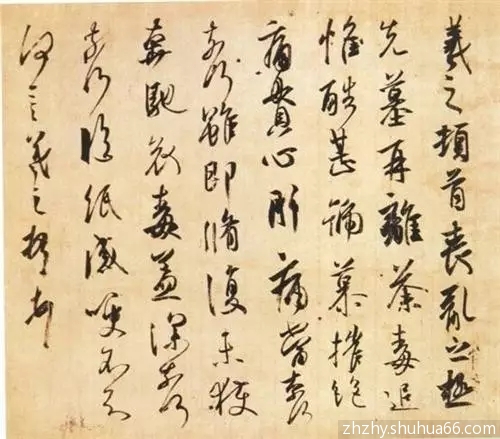 羲之頓首喪亂之極
先墓再離荼毒追
惟酷甚號慕摧絕
痛貫心肝痛當奈何
奈何雖即脩復未獲
奔馳哀毒益深奈何
奈何臨紙感哽不知
何言羲之頓首頓首
zhzhy.shuhua66.com